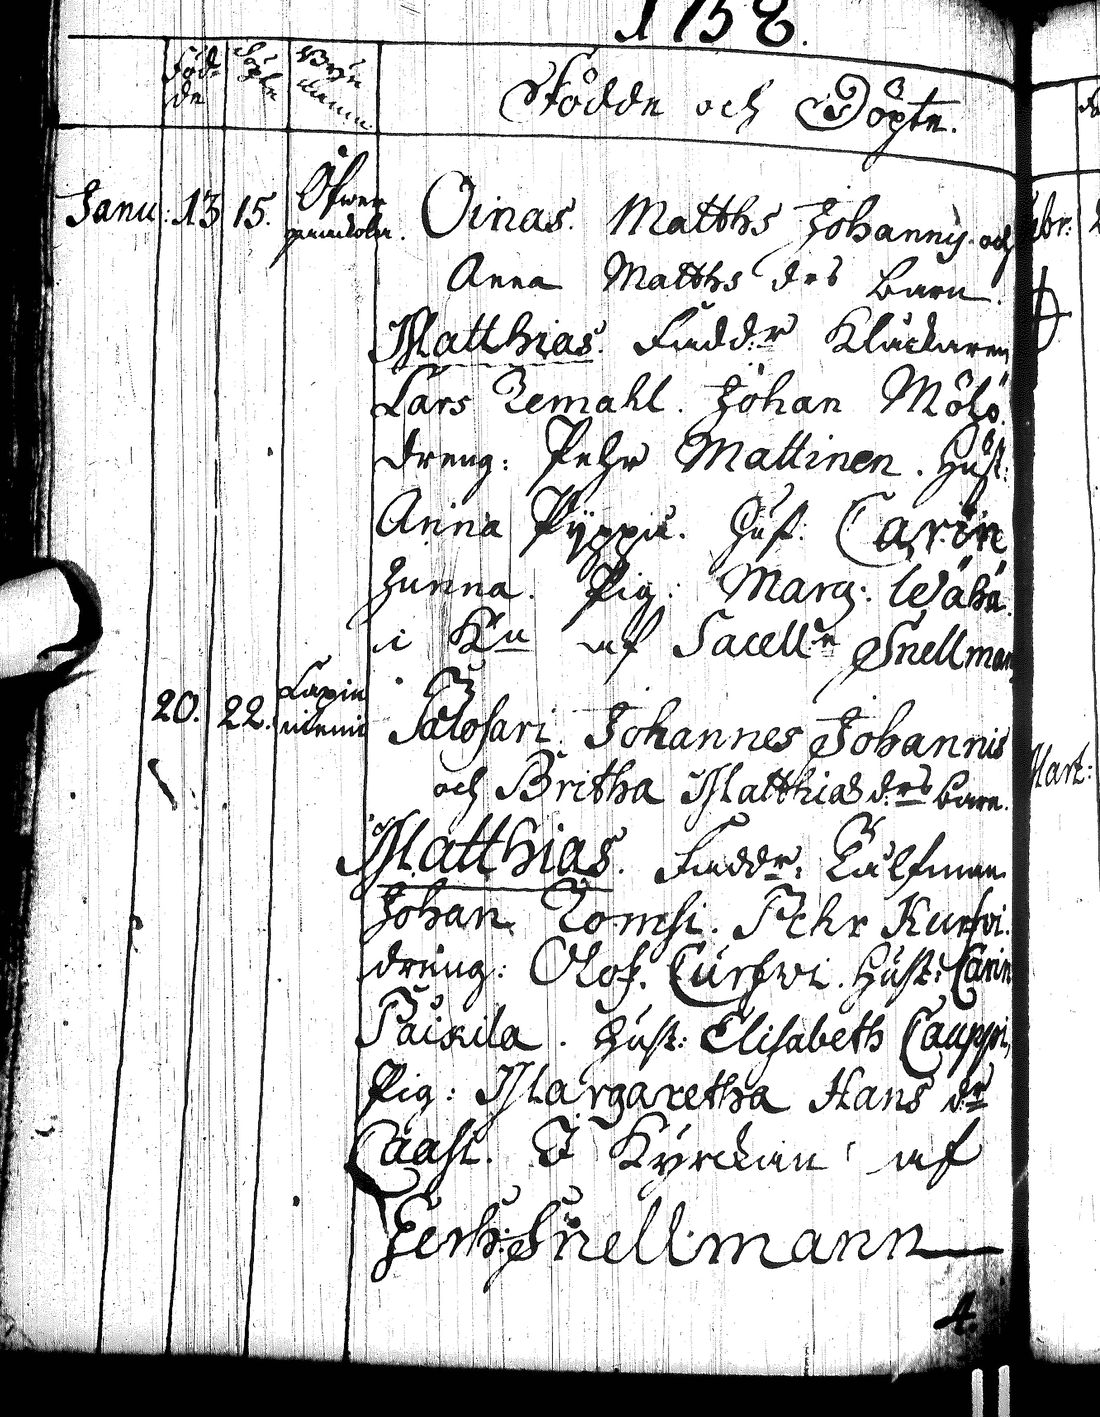 1758.
Föd-
de
Döpte
Byar
Födde och Döpte.
Janu: 13 15. Öfwer
Oinas. Matths Johannis och
Anna Matths drs Barn.
Matthias. Faddr Kluckaren
Lars Zemahl. Johan
dreng: Pehr Mattinen. Hust:
Anna Pyppu. Hust: Carin
Junna. Pig: Marg: Wähä.
i Kn af Sacelln Snellman
20. 22. Lapin
niemi
Salosari. Johannes Johannis
och Britha Matthiæ drs Barn.
Matthias. Faddr:
Johan Tomsi. Pehr Kurfwi.
dräng: Olof Curfwi. Hust: Carin
Paikila. Hust: Elisabeth Cauppi,
Pig: Margaretha Hans dr
Caasi. I Kyrckan af
Snellmann
4.
br:
Mart: